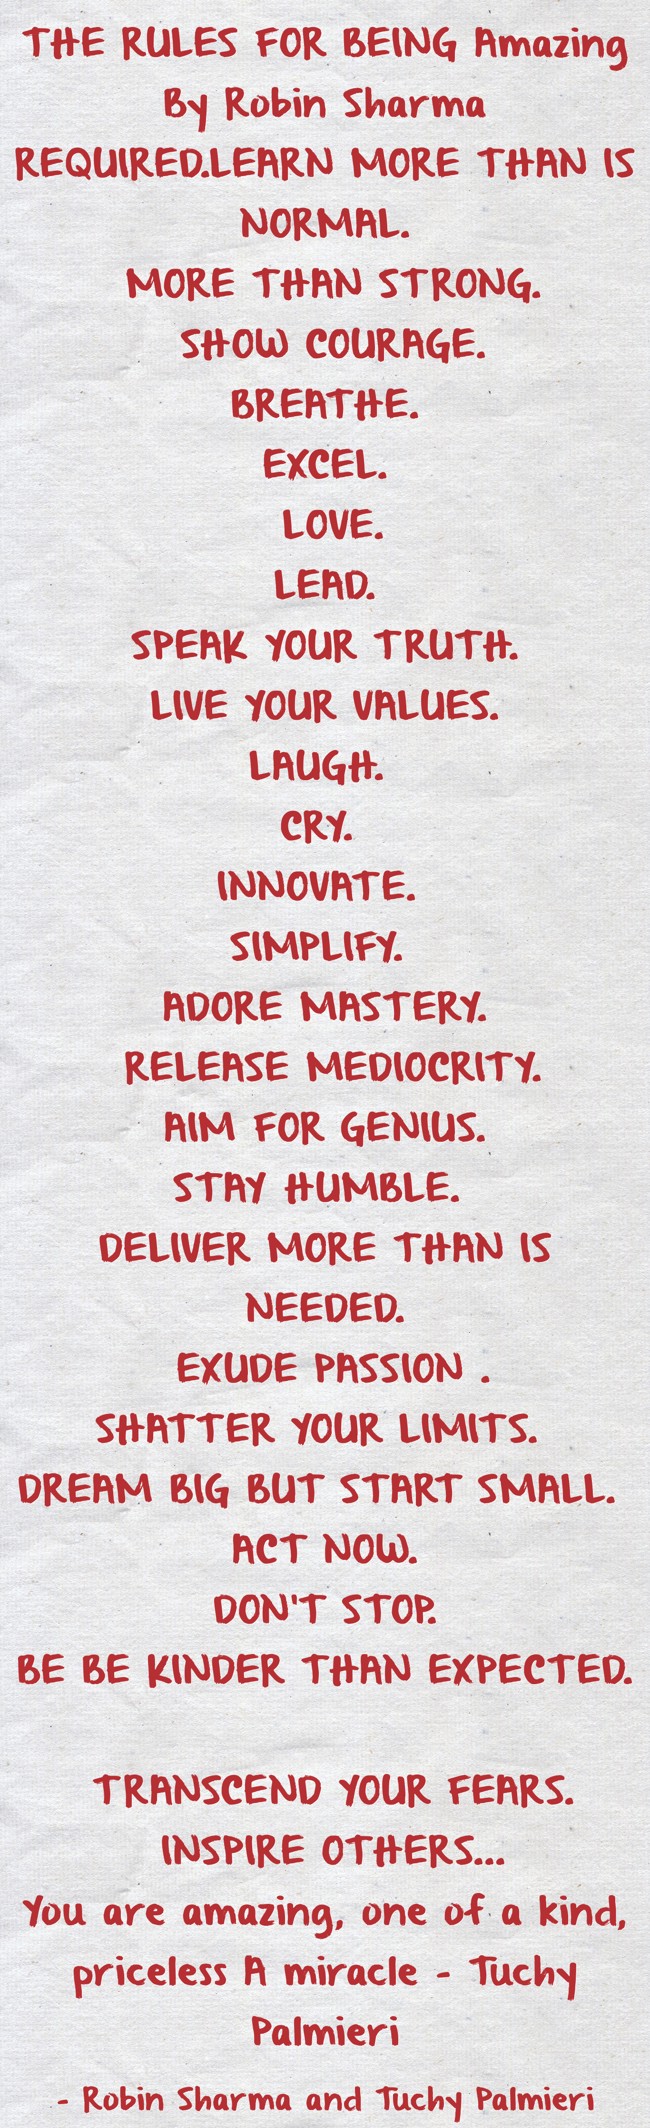 THE RULES FOR BEING Amazing
By Robin Sharma
REQUIRED.LEARN MORE THAN IS
NORMAL.
MORE THAN STRONG.
SHOW COURAGE.
BREATHE.
EXCEL.
LOVE.
LEAD.
SPEAK YOUR TRUTH.
LIVE YOUR VALUES.
LAUGH.
CRY.
INNOVATE.
SIMPLIFY.
ADORE MASTERY.
RELEASE MEDIOCRITY.
AIM FOR GENIUS.
STAY HUMBLE.
DELIVER MORE THAN IS
NEEDED.
EXUDE PASSION .
SHATTER YOUR LIMITS.
DREAM BIG BUT START SMALL.
ACT NOW.
DON'T STOP.
BE BE KINDER THAN EXPECTED.
TRANSCEND YOUR FEARS.
INSPIRE OTHERS...
You are amazing, one of a kind,
priceless A miracle - Tuchy
Palmieri
- Robin Sharma and Tuchy Palmieri